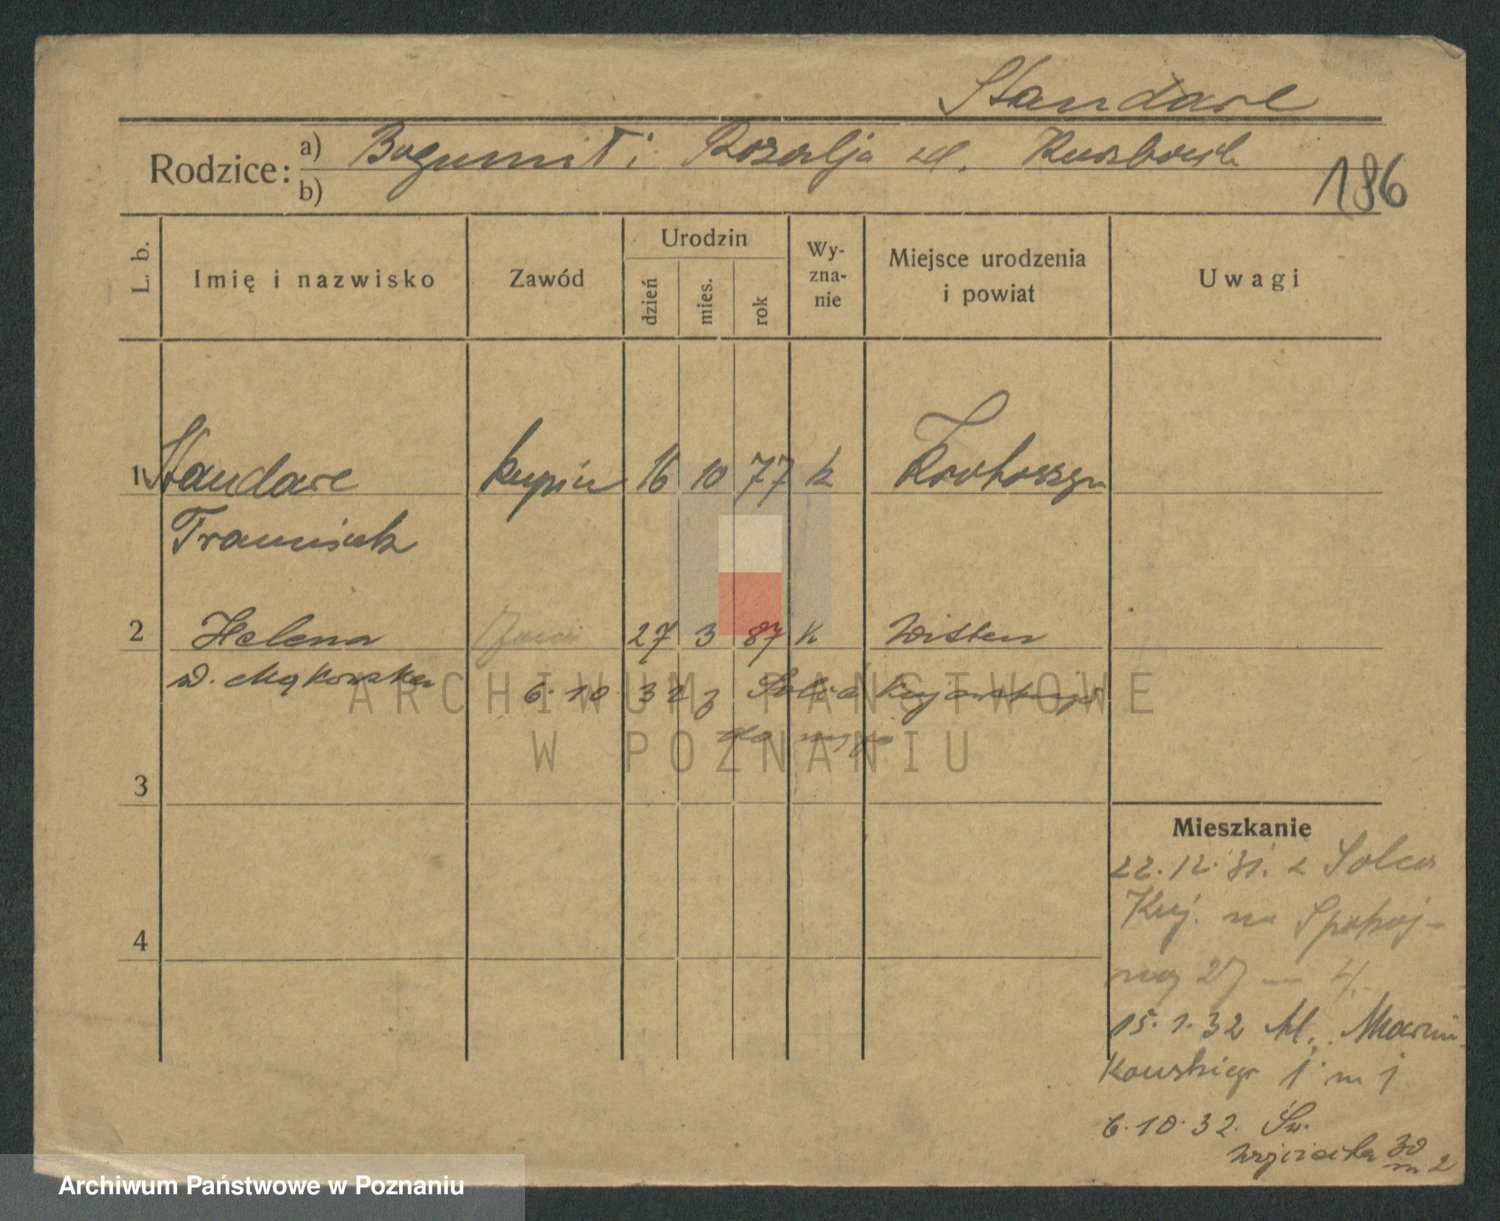 Standare
Rodzice: a) Bogumił i Rozalja zd.
b)
186
L. b. Imię i nazwisko Zawód Urodzin dzień mies. rok Wy-zna-nie Miejsce urodzenia i powiat Uwagi
1 Standare kupiec 16 10 77 k Krotoszyn
Franciszek
2 Helena 27 3 87 k
d. Mąkowska 6.10 32 z Solca Kujawskiego
do męża
3
4
Mieszkanie
22.12.31. z Solca
Kuj. na Spokoj-
nej 27 — 4.
15.1.32 Al. Marcin
kowskiego 1 m 1
6.10.32. Św.
Wojciecha 30
m 2
ARCHIWUM PAŃSTWOWE
W POZNANIU
Archiwum Państwowe w Poznaniu